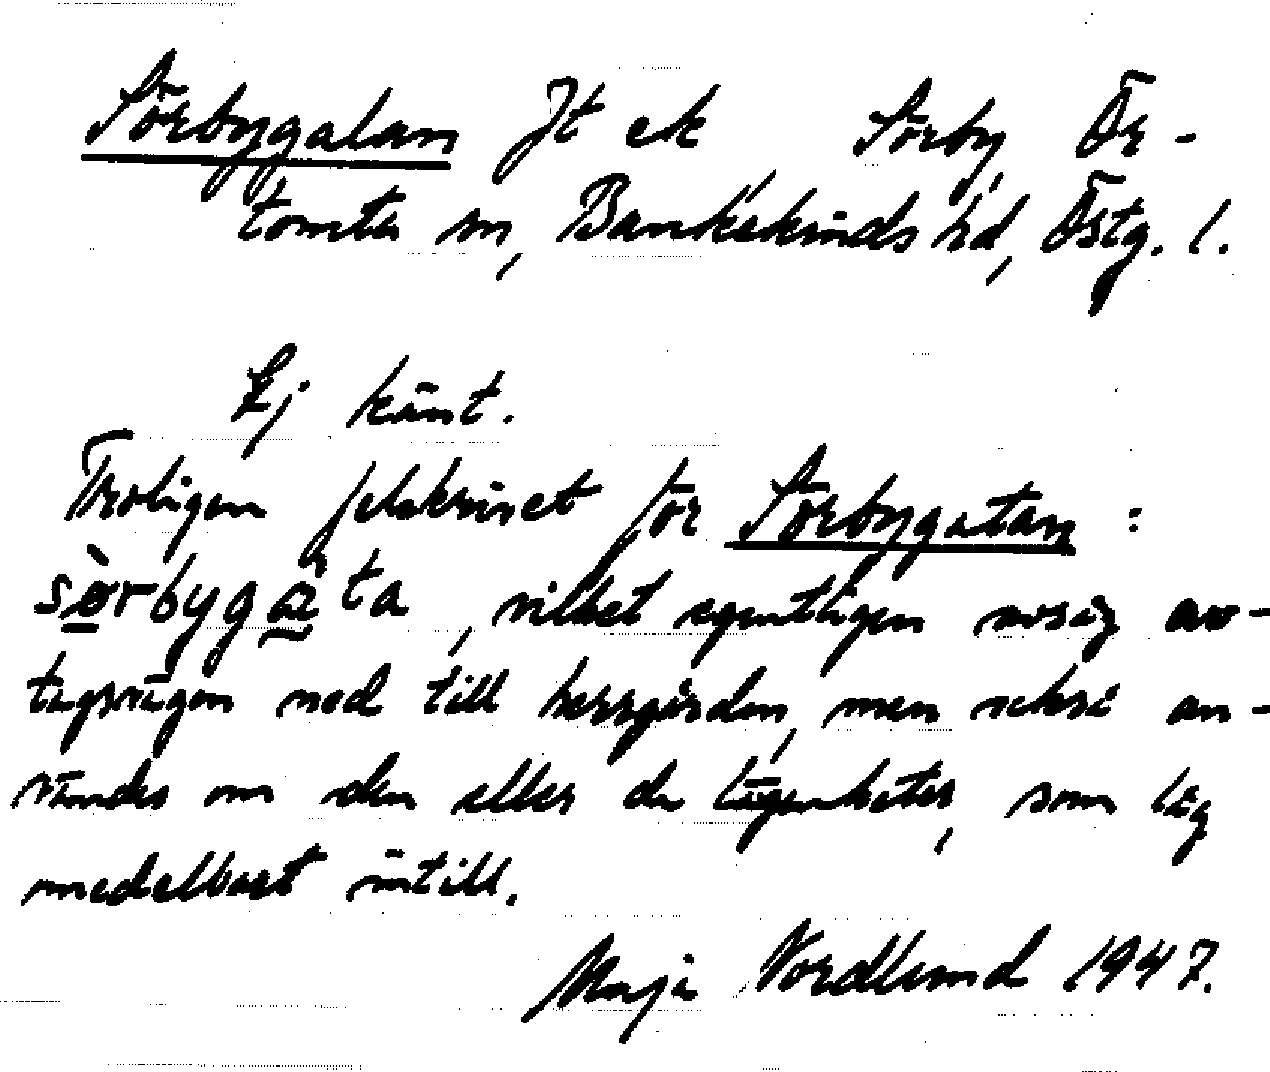 Sörbygalan Jt ek Sörby, Ör-
tomta sn, Bankekinds hd, Östg. l.
Ej känt.
Troligen felskrivet för Sörbygatan :
sörbygata, vilket egentligen avsåg av-
tagsvägen ned till herrgården, men också an-
vändes om den eller de lägenheter, som låg
medelbart intill.
Maja Nordlund 1947.